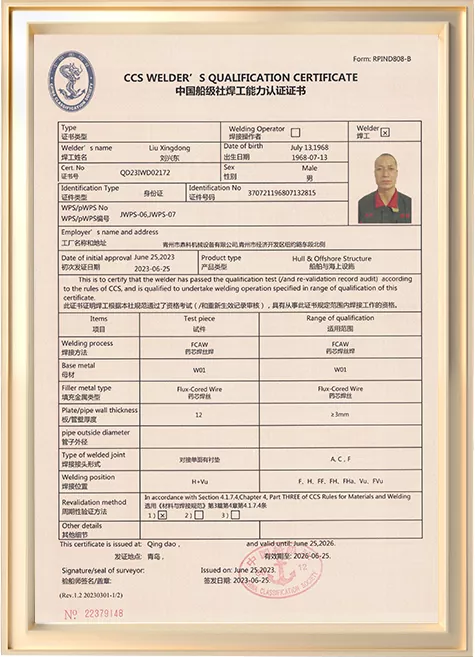 Form: RPIND808-B
CCS WELDER'S QUALIFICATION CERTIFICATE
中国船级社焊工能力认证证书
Type
证书类型
Welding Operator
焊接操作者
Welder
焊工
Welder's name
焊工姓名
Liu Xingdong
刘兴东
Date of birth
出生日期
July 13,1968
1968-07-13
Cert. No
证书号
QD23IWD02172
Sex
性别
Male
男
Identification Type
证件类型
身份证
Identification No
证件号码
370721196807132815
WPS/pWPS No
WPS/pWPS编号
JWPS-06,JWPS-07
Employer's name and address
工厂名称和地址
青州市鼎科机械设备有限公司,青州市经济开发区纽约路东段北侧
Date of initial approval
初次发证日期
June 25,2023
2023-06-25
Product type
产品类型
Hull & Offshore Structure
船舶与海上设施
This is to certify that the welder has passed the qualification test (/and re-validation record audit) according
to the rules of CCS, and is qualified to undertake welding operation specified in range of qualification of this
certificate.
此证书证明焊工根据本社规范通过了资格考试（/和重新生效记录审核），具有从事此证书规定范围内焊接工作的资格。
Items
项目
Test piece
试件
Range of qualification
适用范围
Welding process
焊接方法
FCAW
药芯焊丝焊
FCAW
药芯焊丝焊
Base metal
母材
W01
W01
Filler metal type
填充金属类型
Flux-Cored Wire
药芯焊丝
Flux-Cored Wire
药芯焊丝
Plate/pipe wall thickness
板/管壁厚度
12
≥3mm
pipe outside diameter
管子外径
Type of welded joint
焊接接头形式
对接单面有衬垫
A, C , F
Welding position
焊接位置
H+Vu
F、H、FF、FH、FHa、Vu、FVu
Revalidation method
周期性验证方法
In accordance with Section 4.1.7.4,Chapter 4, Part THREE of CCS Rules for Materials and Welding
选用《材料与焊接规范》第3篇第4章第4.1.7.4条
1) 2) 3)
Other details
其他细节
This certificate is issued at: Qing dao , and valid until: June 25,2026.
发证地点: 青岛, 有效期至: 2026-06-25.
Signature/seal of surveyor:
验船师签名/盖章:
Issued on: June 25,2023.
签发日期: 2023-06-25.
(Rev.1.2 20230301-1/2)
№ 22379148